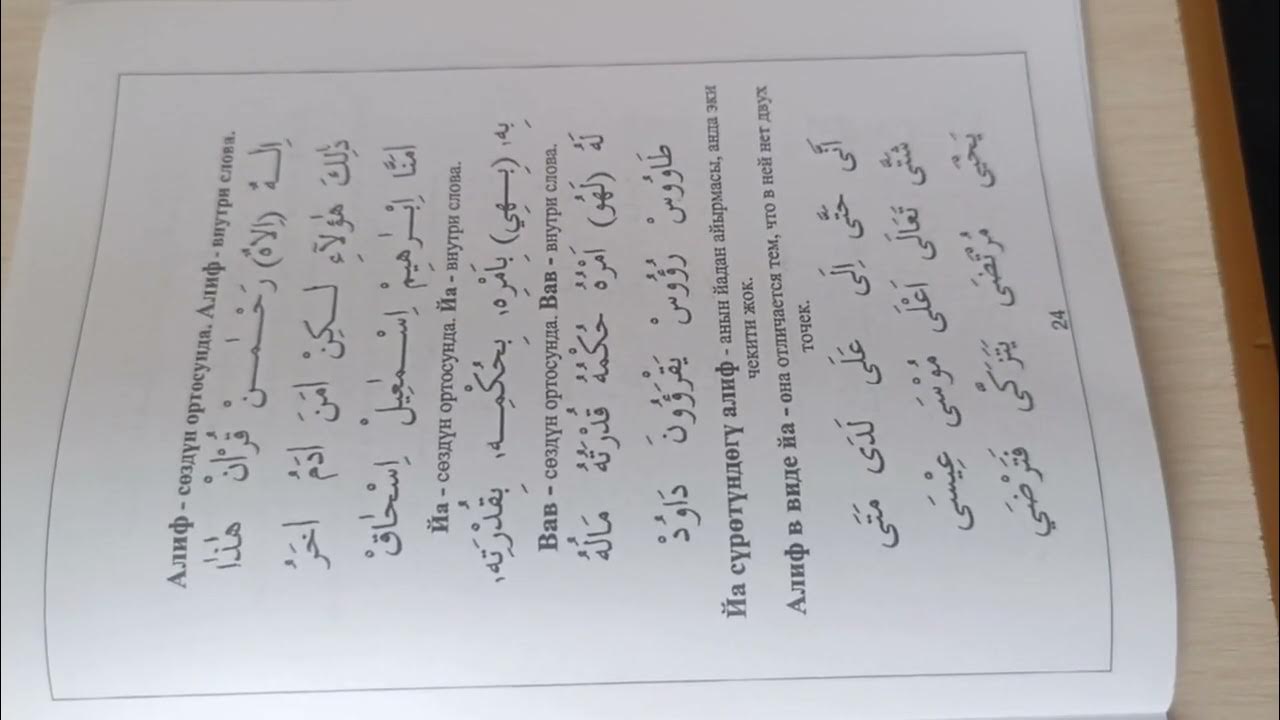 Алиф - сөздүн ортосунда. Алиф - внутри слова.
اِلٰهٌ (اِلَاهٌ) رَحْمٰنْ قُرْاٰنْ هٰذَا
ذٰلِكَ هٰۤؤُلَآءِ لٰكِنْ اٰمَنَ اٰدَمُ اٰخَرُ
اٰمَنَّا اِبْرٰهِيمْ اِسْمٰعِيلْ اِسْحٰاقْ
Йа - сөздүн ортосунда. Йа - внутри слова.
بِهٖ (بِهِي) بِاَمْرِهٖ بِحُكْمِهٖ بِقُدْرَتِهٖ
Вав - сөздүн ортосунда. Вав - внутри слова.
لَهُ (لَهُو) اَمْرُهُ حُكْمُهُ قُدْرَتُهُ مَالُهُ
طَاوُوسْ رُؤُوسْ يَقْرَؤُونَ دَاوُدْ
Йа сүрөтүндөгү алиф - анын йадан айырмасы, анда эки
чекити жок.
Алиф в виде йа - она отличается тем, что в ней нет двух
точек.
اَنَّى حَتَّى اِلَى عَلَى لَدَى مَتَى
شَتَّى تَعَالَى اَعْلَى مُوْسَى عِيْسَى
يَحْيَى مُرْتَضَى يَتَزَكَّى فَتَرْضَي
24